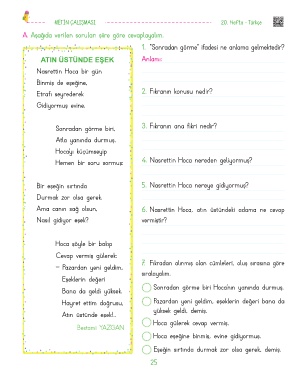 METİN ÇALIŞMASI
20. Hafta - Türkçe
A. Aşağıda verilen soruları şiire göre cevaplayalım.
ATIN ÜSTÜNDE EŞEK
Nasrettin Hoca bir gün
Binmiş de eşeğine,
Etrafı seyrederek
Gidiyormuş evine.
Sonradan görme biri,
Atla yanında durmuş,
Hocayı küçümseyip
Hemen bir soru sormuş:
Bir eşeğin sırtında
Durmak zor olsa gerek
Ama canın sağ olsun,
Nasıl gidiyor eşek?
Hoca şöyle bir bakıp
Cevap vermiş gülerek:
– Pazardan yeni geldim,
Eşeklerin değeri
Bana da geldi yüksek.
Hayret ettim doğrusu,
Atın üstünde eşek!..
Bestami YAZGAN
1. "Sonradan görme" ifadesi ne anlama gelmektedir?
Anlamı:
2. Fıkranın konusu nedir?
3. Fıkranın ana fikri nedir?
4. Nasrettin Hoca nereden geliyormuş?
5. Nasrettin Hoca nereye gidiyormuş?
6. Nasrettin Hoca, atın üstündeki adama ne cevap
vermiştir?
7. Fıkradan alınmış olan cümleleri, oluş sırasına göre
sıralayalım.
Sonradan görme biri Hoca'nın yanında durmuş.
Pazardan yeni geldim, eşeklerin değeri bana da
yüksek geldi, demiş.
Hoca gülerek cevap vermiş.
Hoca eşeğine binmiş, evine gidiyormuş.
Eşeğin sırtında durmak zor olsa gerek, demiş.
25